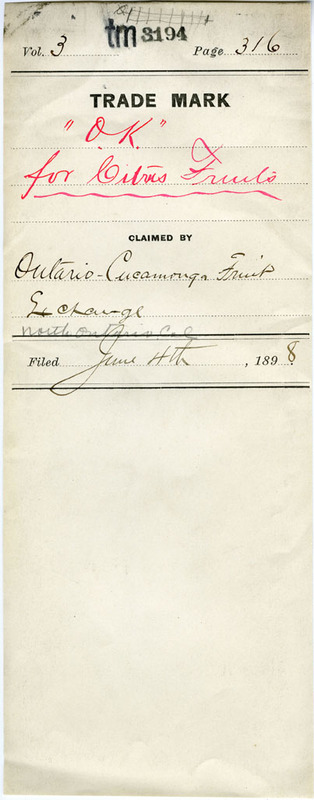 tm 3194
Vol. 3 Page 316
TRADE MARK
"O.K."
for Citrus Fruits
CLAIMED BY
Ontario-Cucamonga Fruit
Exchange
North Ontario Cal
Filed June 4th, 1898.